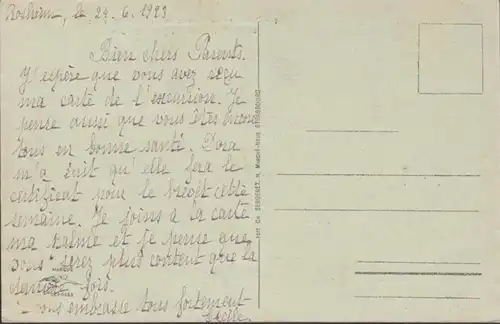 Rosheim, le 29. 6. 1923
Bien chers Parents.
J'espère que vous avez reçu
ma carte de l'excursion. Je
pense aussi que vous êtes encore
tous en bonne santé. Dora
m'a écrit qu'elle fera le
certificat pour le brevet cette
semaine. Je joins à la carte
ma et je pense que
vous serez plus content que la
dernière fois.
vous embrasse tous fortement